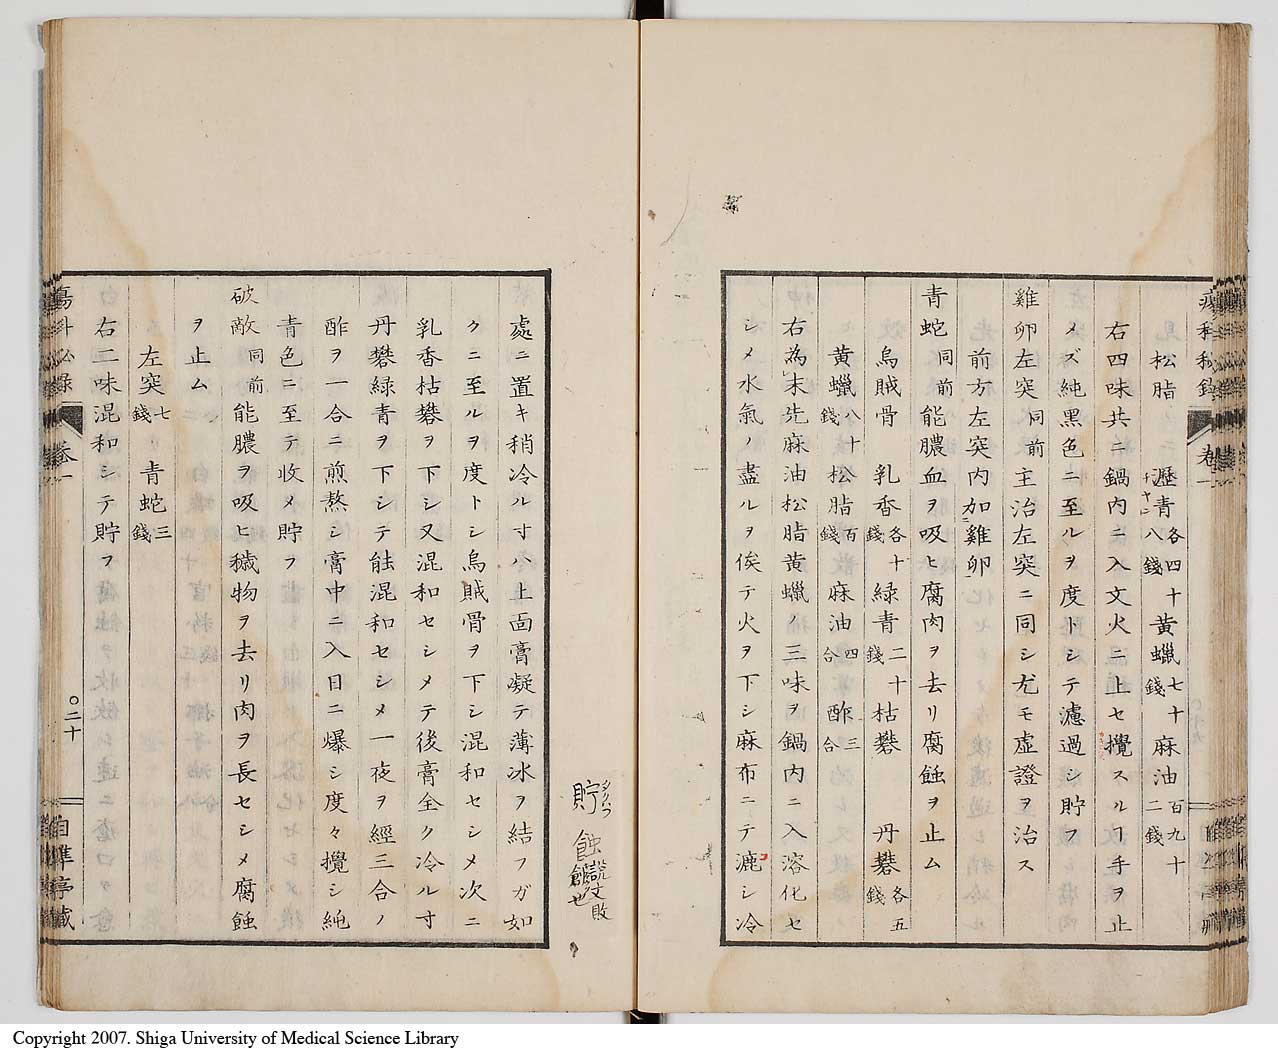 松脂 瀝青各四十八錢 黄蠟七十錢 麻油百九十二錢
右四味共ニ鍋内ニ入文火ニ上セ攪スルヿ手ヲ止
メズ純黒色ニ至ルヲ度トシテ濾過シ貯フ
雞卵左突同前主治左突ニ同シ尤モ虚證ヲ治ス
前方左突内加雞卵
青蛇同前能膿血ヲ吸ヒ腐肉ヲ去リ腐蝕ヲ止ム
烏賊骨 乳香各十錢 緑青二十錢 枯礬 丹礬各五錢
黄蠟八十錢 松脂百錢 麻油四合 酢三合
右為末先麻油松脂黄蠟ノ三味ヲ鍋内ニ入溶化セ
シメ水氣ノ盡ルヲ俟テ火ヲ下シ麻布ニテ漉シ冷
處ニ置キ稍冷ル寸ハ上面膏凝テ薄冰ヲ結フガ如
クニ至ルヲ度トシ烏賊骨ヲ下シ混和セシメ次ニ
乳香枯礬ヲ下シ又混和セシメテ後膏全ク冷ル寸
丹礬緑青ヲ下シテ能混和セシメ一夜ヲ經三合ノ
酢ヲ一合ニ煎熬シ膏中ニ入日ニ爆シ度々攪シ純
青色ニ至テ收メ貯フ
破敵同前能膿ヲ吸ヒ穢物ヲ去リ肉ヲ長セシメ腐蝕
ヲ止ム
左突七錢 青蛇三錢
右二味混和シテ貯フ
瘍科秘録 卷一
〇二十
自準亭藏
貯タクワフ
蝕説文敗創也
Copyright 2007. Shiga University of Medical Science Library